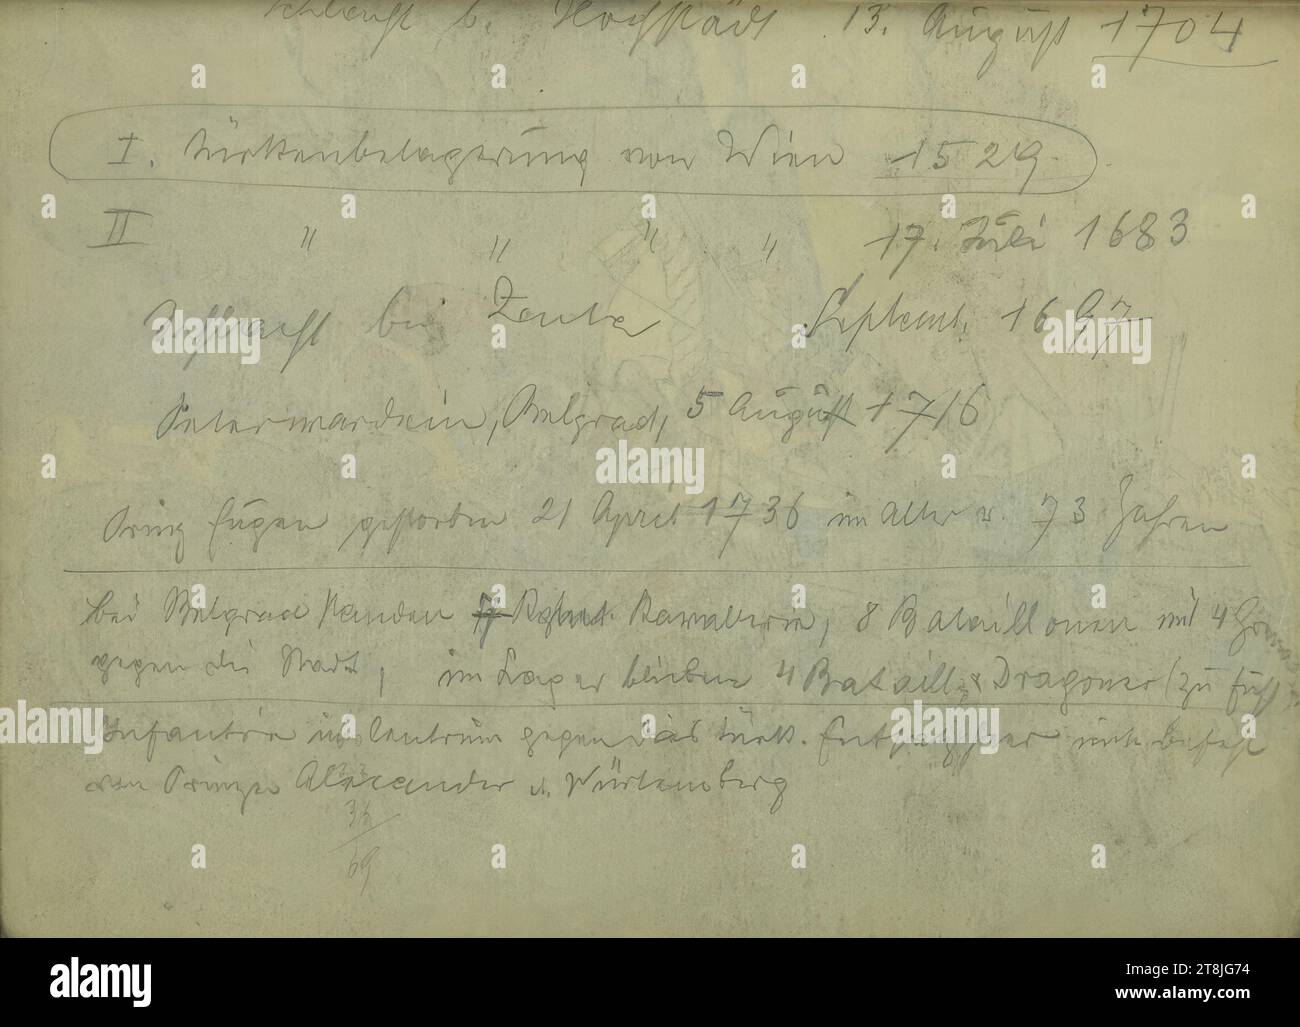 Schlacht b. Hochstädt 13. August 1704
I. Türkenbelagerung von Wien 1529.
II " " " " 17. Juli 1683
Schlacht bei Zenta Septemb. 1697
Peterwardein, Belgrad, 5 August 1716
Prinz Eugen gestorben 21 April 1736 im Alter v. 73 Jahren
bei Belgrad standen 7 Kavallerie, 8 Bataillonen mit 4
gegen die Stadt, im Lager blieben 4 Bataill. Dragoner (zu Fuß
Infanterie im Centrum gegen das türk. Entsatzheer unter Befehl
von Prinzen Alexander v. Württemberg
36
69
alamy
alamy
a
a
Image ID: 2T8JG74
www.alamy.com